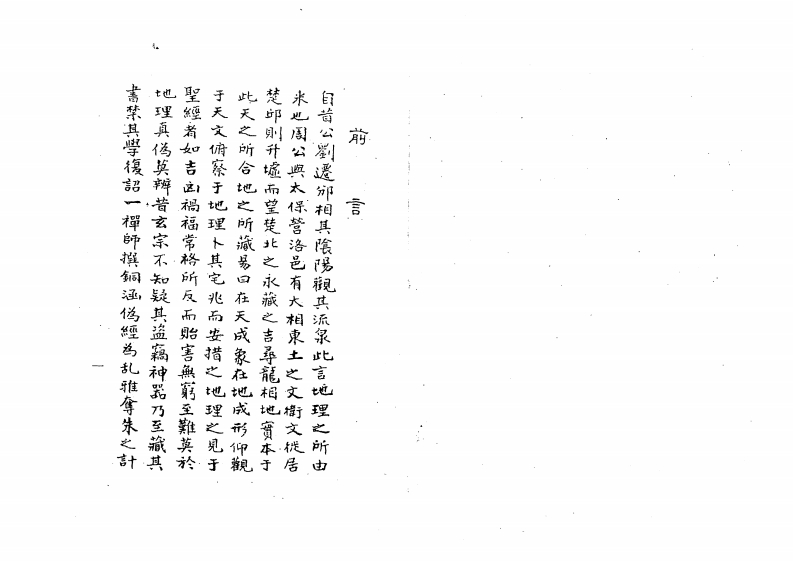 前言
自昔公劉遷邠相其陰陽觀其流泉此言地理之所由
來也周公與太保營洛邑有大相東土之文衛文從居
楚邱則升墟而望楚北之永藏之吉尋龍相地實本于
此天之所合地之所藏易曰在天成象在地成形仰觀
于天文俯察于地理卜其宅兆而安措之地理之見于
聖經者如吉凶禍福常格所反而貽害無窮至難莫於
地理真偽莫辨昔玄宗不知疑其盜竊神器乃至藏其
書禁其學復詔一禪師撰銅函偽經為乱雅奪朱之計
一